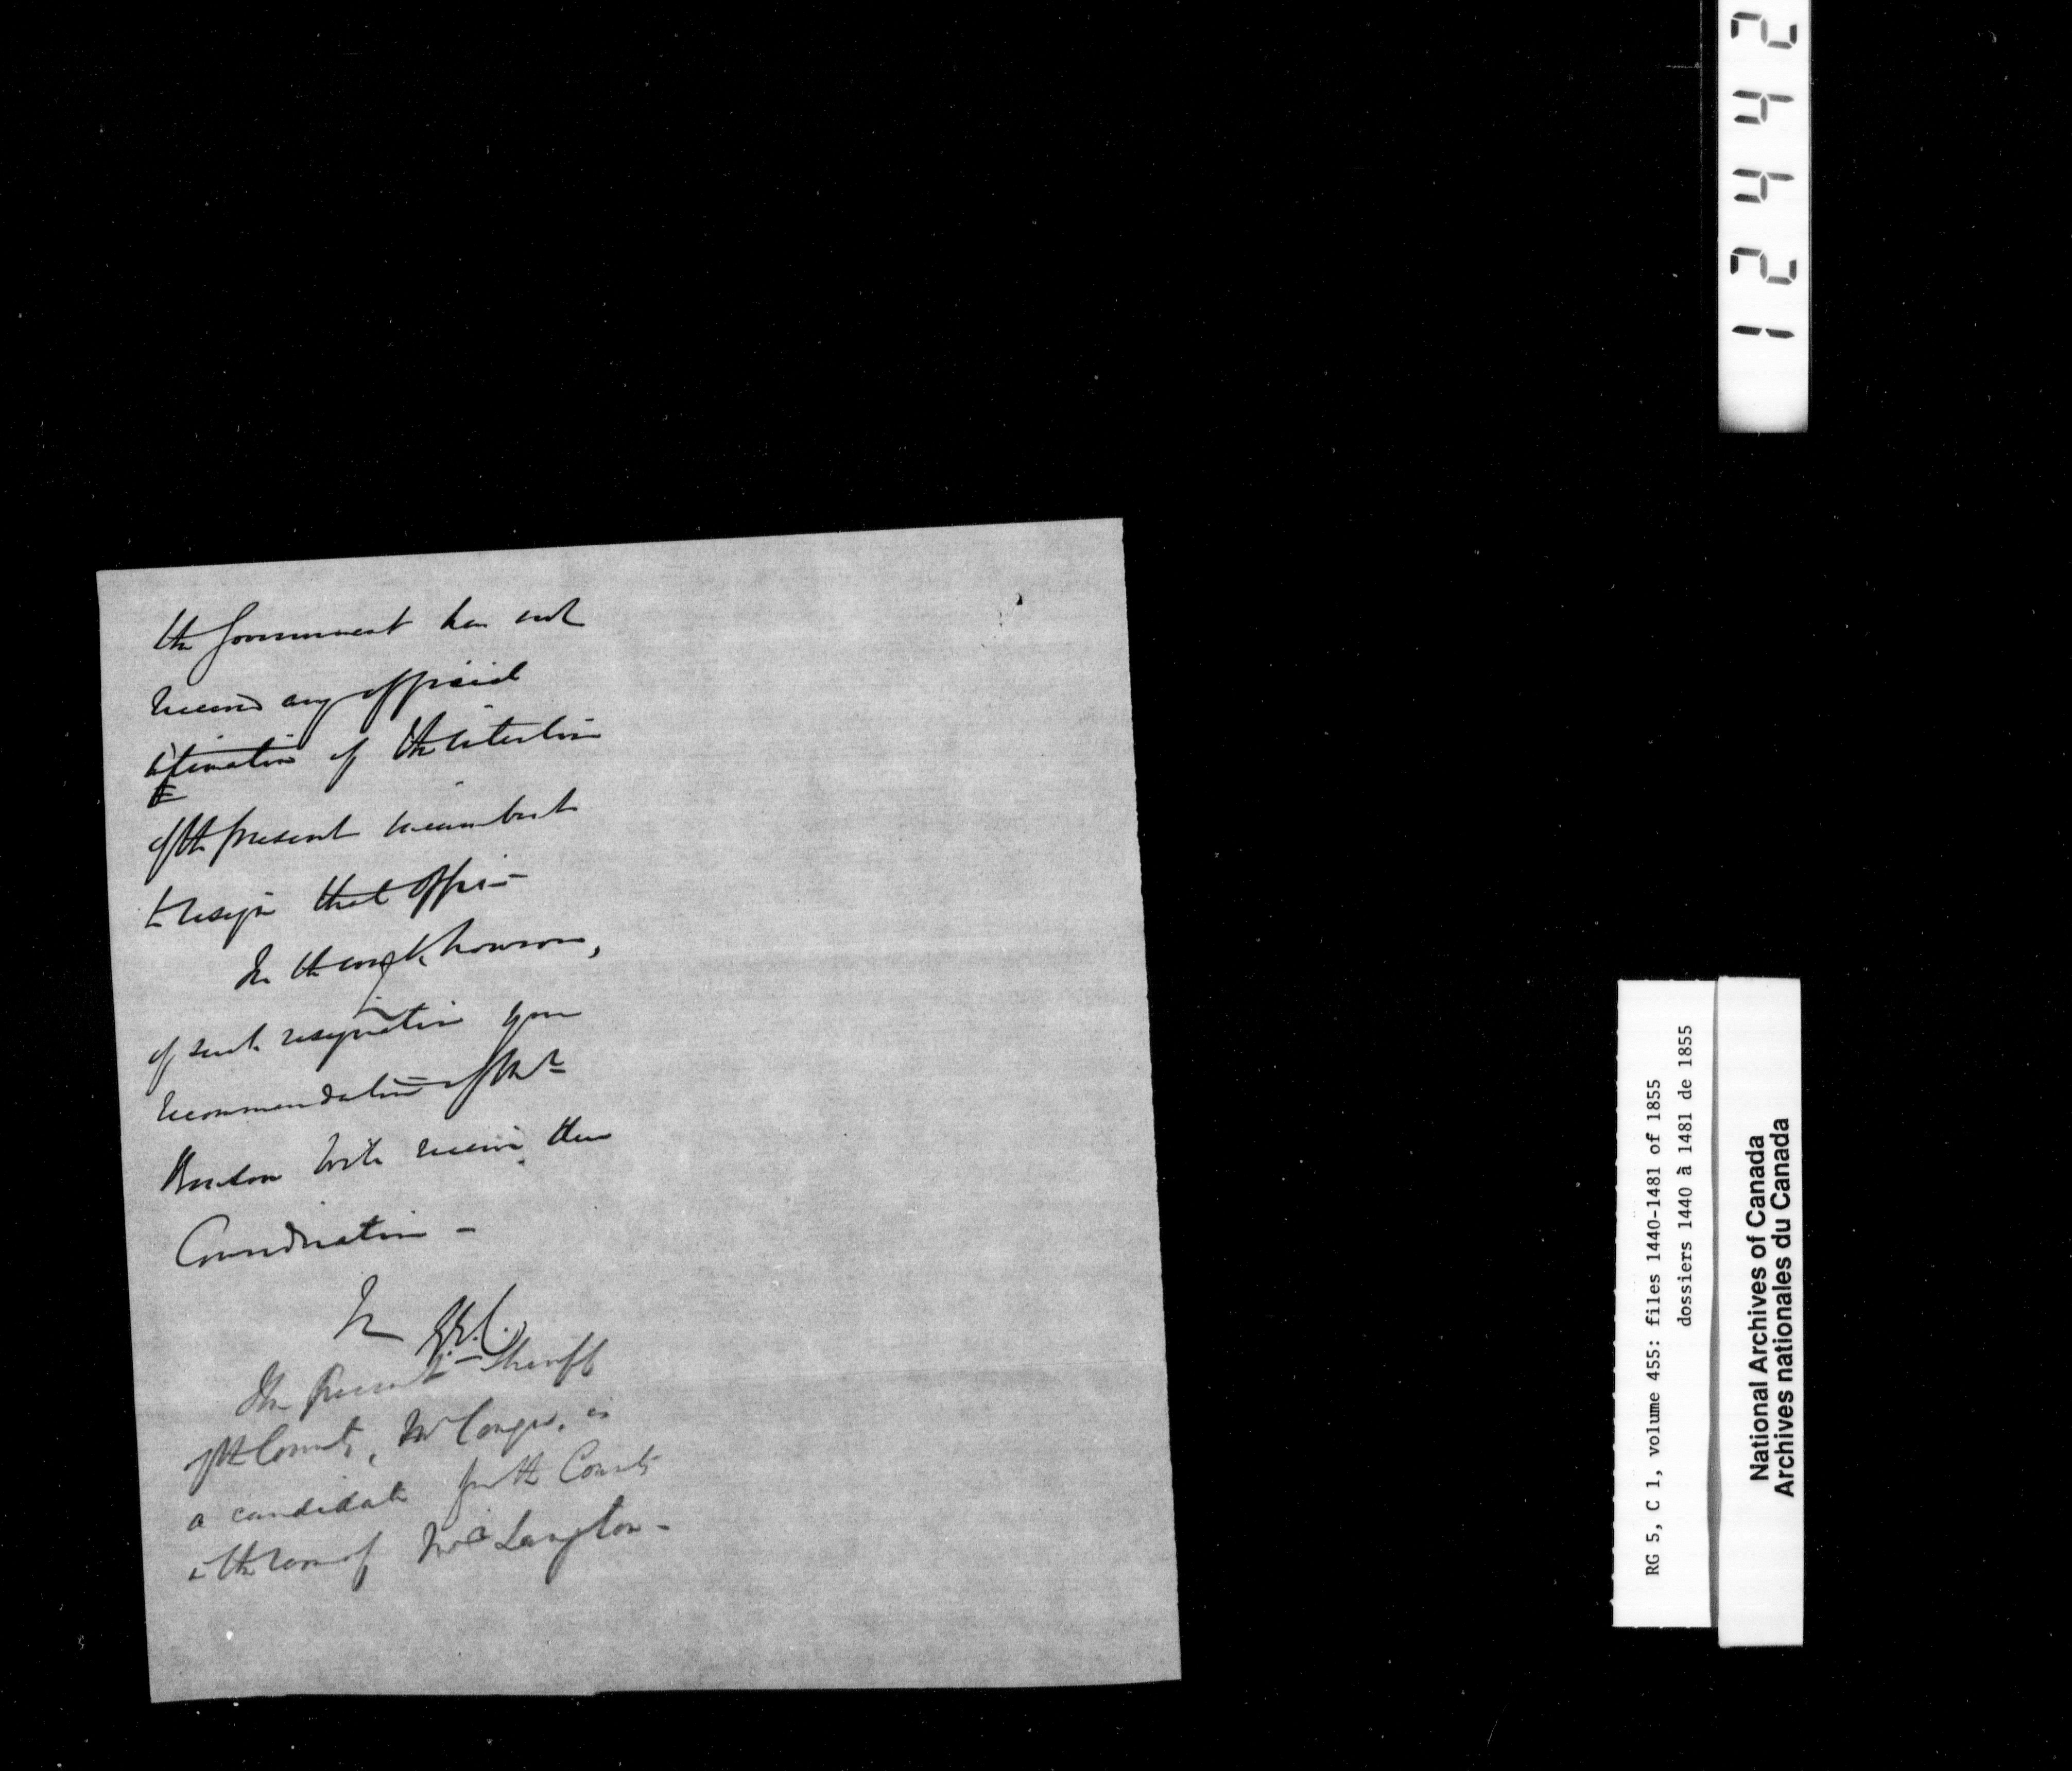 the Government has not
received any official
intimation of the intention
of the present incumbent
to resign that office –
In the event, however,
of such resignation your
recommendation of Mr
will receive due
Consideration –
The Present Sheriff
of the County, Mr Conger, is
a candidate for the County
in the room of Mr Langton –
12442
RG 5, C 1, volume 455: files 1440-1481 of 1855
dossiers 1440 à 1481 de 1855
National Archives of Canada
Archives nationales du Canada